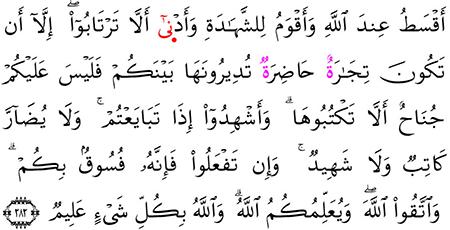 أَقْسَطُ عِندَ ٱللَّهِ وَأَقْوَمُ لِلشَّهَـٰدَةِ وَأَدْنَىٰٓ أَلَّا تَرْتَابُوٓا۟ ۖ إِلَّآ أَن
تَكُونَ تِجَـٰرَةٌ حَاضِرَةٌ تُدِيرُونَهَا بَيْنَكُمْ فَلَيْسَ عَلَيْكُمْ
جُنَاحٌ أَلَّا تَكْتُبُوهَا ۗ وَأَشْهِدُوٓا۟ إِذَا تَبَايَعْتُمْ ۚ وَلَا يُضَآرَّ
كَاتِبٌ وَلَا شَهِيدٌ ۚ وَإِن تَفْعَلُوا۟ فَإِنَّهُۥ فُسُوقٌۢ بِكُمْ ۗ
وَٱتَّقُوا۟ ٱللَّهَ ۖ وَيُعَلِّمُكُمُ ٱللَّهُ ۗ وَٱللَّهُ بِكُلِّ شَىْءٍ عَلِيمٌ ٢٨٢